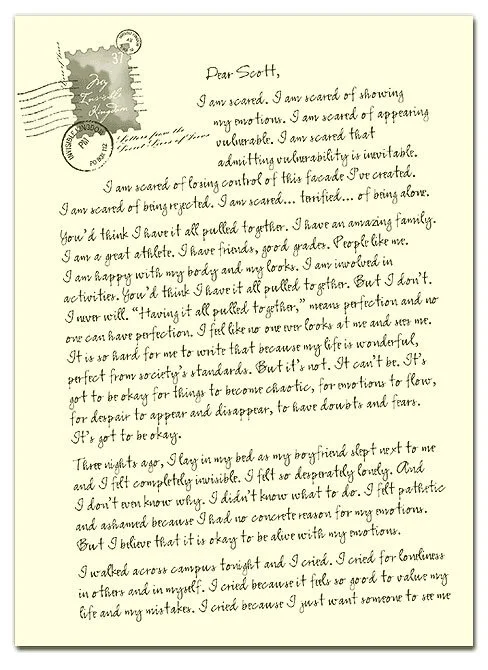 37
My
Invisible
Kingdom
INVISIBLE KINGDOM
PM
PO BOX 112
Letters from the
Dear Scott,
I am scared. I am scared of showing
my emotions. I am scared of appearing
vulnerable. I am scared that
admitting vulnerability is inevitable.
I am scared of losing control of this facade I've created.
I am scared of being rejected. I am scared... terrified... of being alone.
You'd think I have it all pulled together. I have an amazing family.
I am a great athlete. I have friends, good grades. People like me.
I am happy with my body and my looks. I am involved in
activities. You'd think I have it all pulled together. But I don't.
I never will. "Having it all pulled together," means perfection and no
one can have perfection. I feel like no one ever looks at me and sees me.
It is so hard for me to write that because my life is wonderful,
perfect from society's standards. But it's not. It can't be. It's
got to be okay for things to become chaotic, for emotions to flow,
for despair to appear and disappear, to have doubts and fears.
It's got to be okay.
Three nights ago, I lay in my bed as my boyfriend slept next to me
and I felt completely invisible. I felt so desperately lonely. And
I don't even know why. I didn't know what to do. I felt pathetic
and ashamed because I had no concrete reason for my emotions.
But I believe that it is okay to be alive with my emotions.
I walked across campus tonight and I cried. I cried for loneliness
in others and in myself. I cried because it feels so good to value my
life and my mistakes. I cried because I just want someone to see me